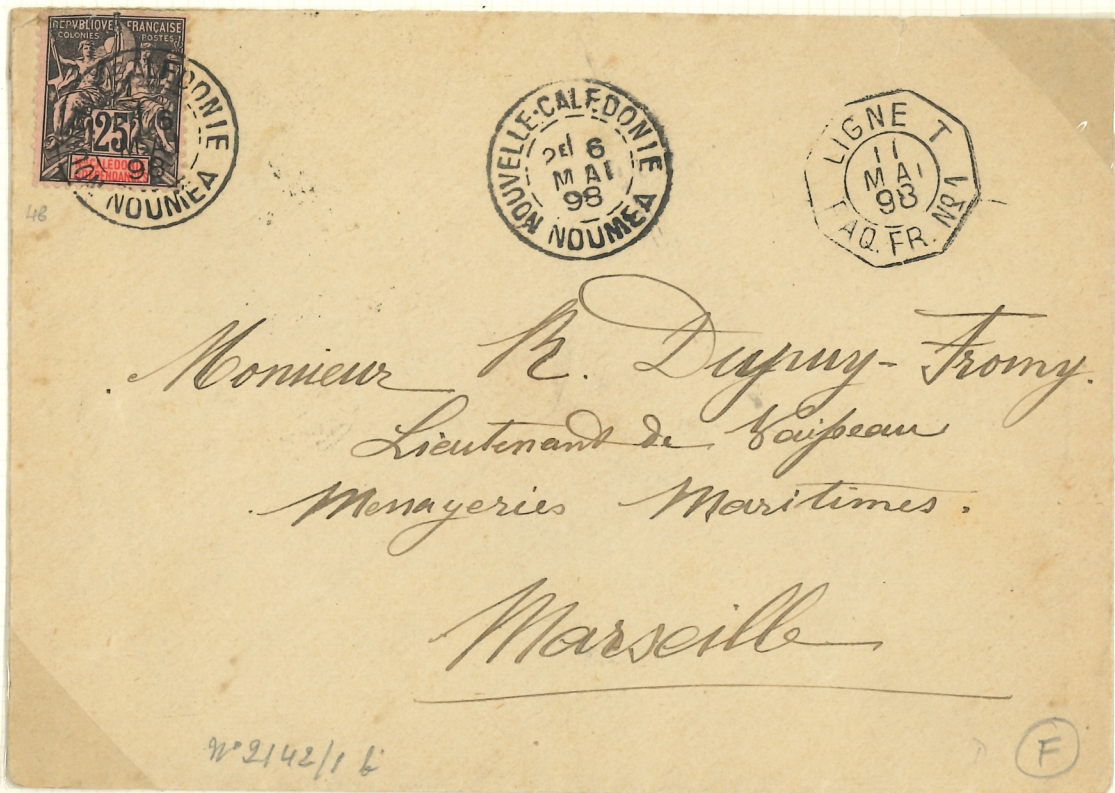 REPVBLIQVE FRANÇAISE
COLONIES POSTES
25
NLLE CALEDONIE
DEPENDANCES
NOUMEA
98
NOUVELLE-CALEDONIE
2E/ 6
MAI
98
NOUMEA
LIGNE T
11
MAI
98
PAQ. FR. Nº1
48
Monsieur R. Dupuy-Fromy.
Lieutenant de Vaisseau
Messageries Maritimes.
Marseille
Nº 2142/1
F